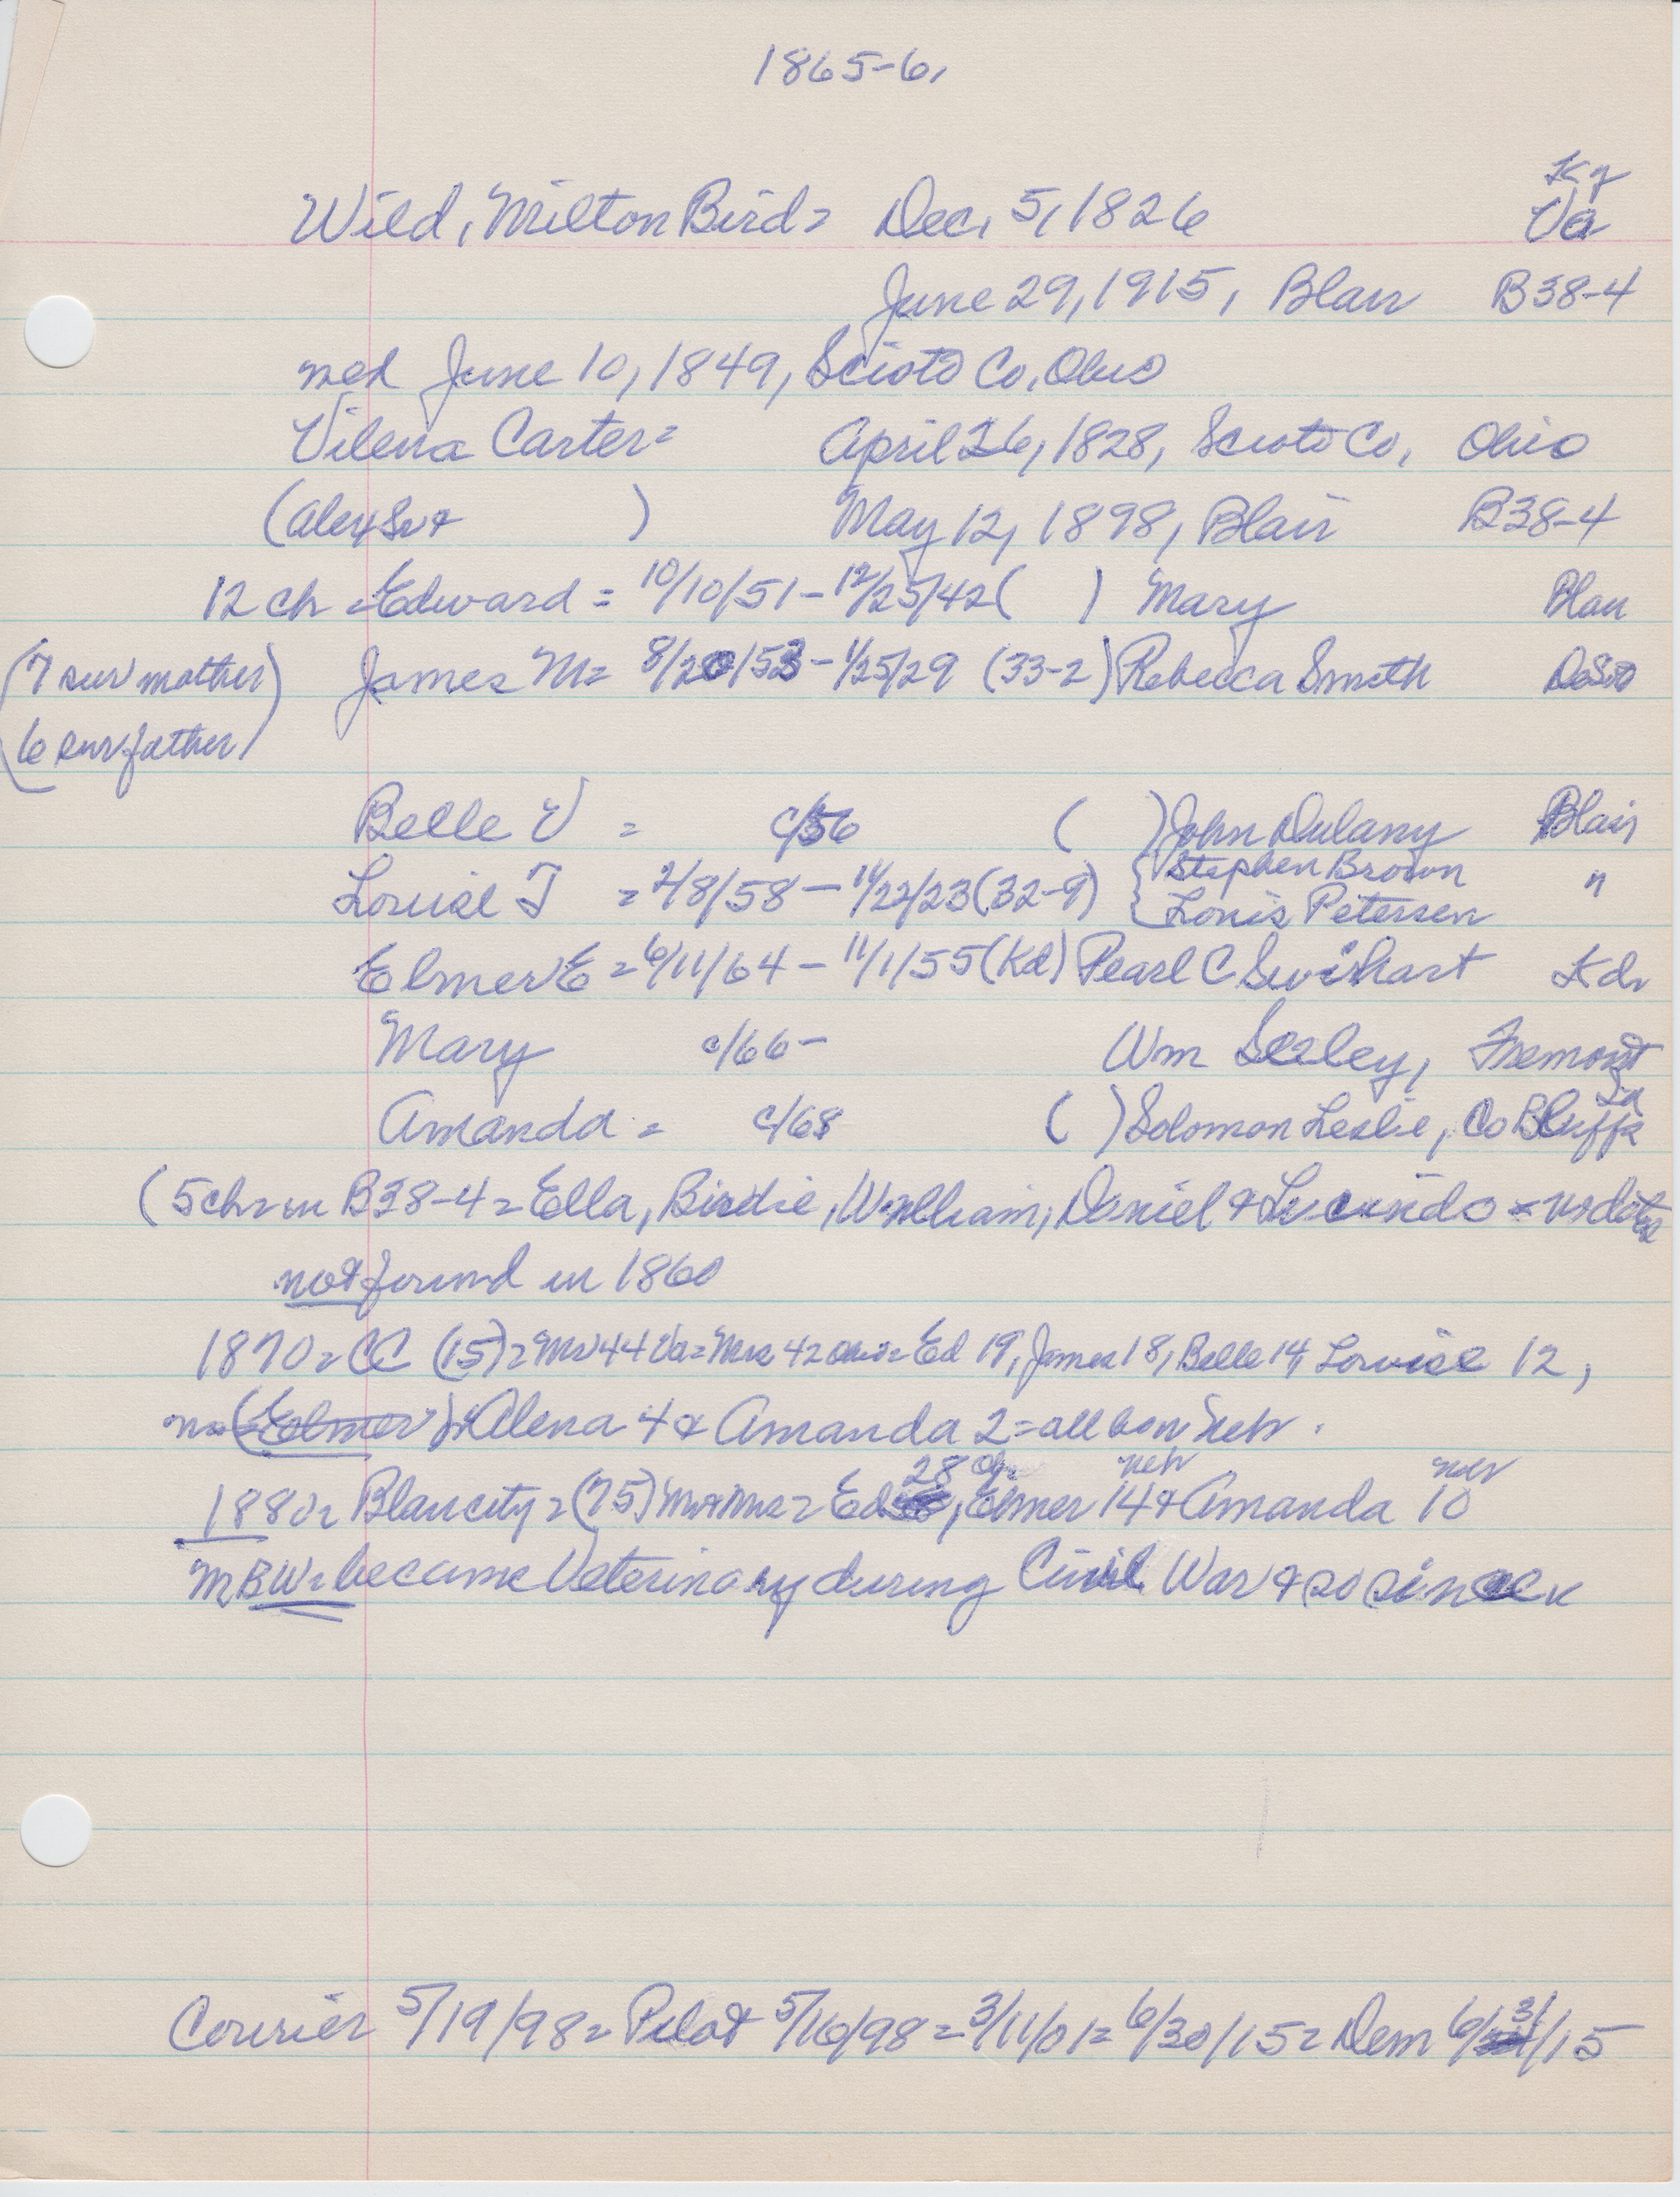 1865-6,
Ky
Wild, Milton Bird = Dec, 5, 1826 Va
June 29, 1915, Blair B38-4
med June 10, 1849, Scioto Co, Ohio
Vilena Carter = April 26, 1828, Scioto Co, Ohio
(Alex Sr + ) May 12, 1898, Blair B38-4
12 ch = Edward = 10/10/51 - 12/25/42 ( ) Mary Blair
(7 sur mother) James M = 8/20/53 - 1/25/29 (33-2) Rebecca Smith DeSoto
(6 sur father)
Belle V = c/56 ( ) John Dulany Blair
Louise J = 2/8/58 - 11/22/23 (32-9) { Stephen Brown "
Louis Petersen
Elmer E = 6/11/64 - 11/1/55 (Kd) Pearl C Swihart Kdr
Mary c/66 - Wm Seeley, Fremont
Amanda = c/68 ( ) Solomon Leslie, Co Bluffs Ia
(5 ch = in B38-4 = Ella, Birdie, William, Daniel & = no dates
not found in 1860
1870 = CC (15) = Mr 44 Va = Mrs 42 Ohio = Ed 19, James 18, Belle 14, Louise 12,
no (Elmer) + Alena 4 & Amanda 2 = all born Neb.
28 Oh neb neb
1880 = Blair city = (75) Mr + Mrs = Ed, Elmer 14 & Amanda 10
MBW = became Veterinary during Civil War & so since
Courier 5/19/98 = Pilot 5/16/98 = 3/11/01 = 6/30/15 = Dem 6/31/15